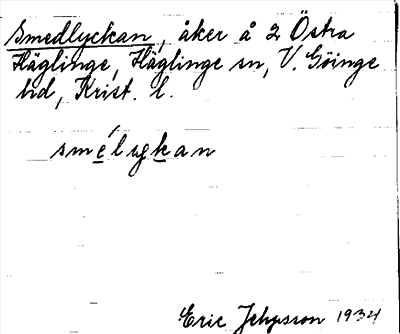 Smedlyckan, åker å 2 Östra
Häglinge, Häglinge sn, V. Göinge
hd, Krist. l.
smélygkan
Eric Jepsson 1934